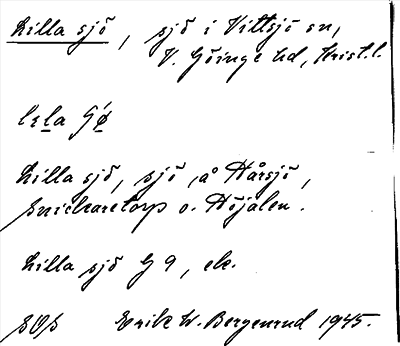 Lilla sjö, sjö i Vittsjö sn,
V. Göinge hd, Krist.l.
lɛla
Lilla sjö, sjö, å Hårsjö,
Snickaretorp o. Höjalen.
Lilla sjö G 9, ek.
SOS Erik W. Bergenrud 1945.